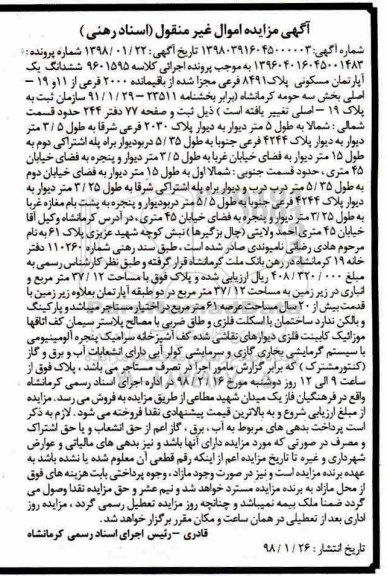 آگهی مزایده اموال غیر منقول (اسناد رهنی)
شماره آگهی: ۱۳۹۸۰۳۹۱۶۰۴۵۰۰۰۰۰۳ تاریخ آگهی: ۱۳۹۸/۰۱/۲۲ شماره پرونده:
۱۳۹۶۰۴۰۱۶۰۴۵۰۰۱۴۸۳ به موجب پرونده اجرائی کلاسه ۹۶۰۱۵۹۵ ششدانگ یک
آپارتمان مسکونی پلاک ۸۴۹۱ فرعی مجزا شده از باقیمانده ۲۰۰۰ فرعی از ۱۱و ۱۹ –
اصلی بخش سه حومه کرمانشاه (برابر بخشنامه ۲۳۵۱۱ – ۹۱/۱/۲۹ سازمان ثبت به
پلاک ۱۹ – اصلی تغییر یافته است) ذیل ثبت و صفحه ۷۷ دفتر ۲۴۴ حدود قسمت
شمالی: شمالا به طول ۵ متر دیوار به دیوار پلاک ۲۰۳۰ فرعی شرقا به طول ۳/۵ متر
دیوار به دیوار پلاک ۴۲۴۴ فرعی جنوبا به طول ۵/۳۵ دربودیوار براه پله اشتراکی دوم به
طول ۱۵ متر دیوار به فضای خیابان غربا به طول ۳/۵ متر دیوار و پنجره به فضای خیابان
۴۵ متری، حدود قسمت جنوبی: شمالا اول به طول ۱۵ متر دیوار به فضای خیابان دوم
به طول ۵/۳۵ متر درب درب و دیوار براه پله اشتراکی شرقا به طول ۳/۲۵ متر دیوار به
دیوار پلاک ۴۲۴۴ فرعی جنوبا به طول ۵/۵ متر دربودیوار و پنجره به پشت بام مغازه غربا
به طول ۳/۲۵ متر دیوار و پنجره به فضای خیابان ۴۵ متری، در آدرس کرمانشاه وکیل آقا
خیابان ۴۵ متری احمد ولایتی (چال بزگیرها) نبش کوچه شهید عزیزی پلاک ۶۱ به نام
مرحوم هادی رضائی نامیوندی صادر شده است، طبق سند رهنی شماره ۱۱۰۲۶۰ دفتر
خانه ۱۹ کرمانشاه در رهن بانک ملت کرمانشاه قرار گرفته و طبق نظر کارشناس رسمی به
مبلغ ۴۰۸/۳۲۰/۰۰۰ ریال ارزیابی شده و پلاک فوق با مساحت ۳۷/۱۲ متر مربع و
انباری در زیر زمین به مساحت ۳۷/۱۲ متر مربع در دو طبقه آپارتمان بعلاوه زیر زمین با
قدمت بیش از ۲۰ سال مساحت عرصه ۶۱ متر مربع در اختیار مستاجر میباشد و پارکینگ
و بالکن ندارد ساختمان با اسکلت فلزی و طاق ضربی با مصالح پلاستر سیمان کف اتاقها
موزائیک کابینت فلزی دیوارهای نقاشی شده کف آشپزخانه سرامیک پنجره آلومینیومی
با سیستم گرمایشی بخاری گازی و سرمایشی کولر آبی دارای انشعابات آب و برق و گاز
(کنتورمشترک) که برابر گزارش مامور اجرا در تصرف مستاجر می باشد، پلاک فوق از
ساعت ۹ الی ۱۲ روز دوشنبه مورخ ۹۸/۲/۱۶ در اداره اجرای اسناد رسمی کرمانشاه
واقع در فرهنگیان فاز یک میدان شهید مطاعی از طریق مزایده به فروش می رسد. مزایده
از مبلغ ارزیابی شروع و به بالاترین قیمت پیشنهادی نقدا فروخته می شود. لازم به ذکر
است پرداخت بدهی های مربوط به آب، برق، گاز اعم از حق انشعاب و یا حق اشتراک
و مصرف در صورتی که مورد مزایده دارای آنها باشد و نیز بدهی های مالیاتی و عوارض
شهرداری و غیره تا تاریخ مزایده اعم از اینکه رقم قطعی آن معلوم شده یا نشده باشد به
عهده برنده مزایده است و نیز در صورت وجود مازاد، وجوه پرداختی بابت هزینه های فوق
از محل مازاد به برنده مزایده مسترد خواهد شد و نیم عشر و حق مزایده نقدا وصول می
گردد ضمنا ملک بیمه نمیباشد و چنانچه روز مزایده تعطیل رسمی گردد، مزایده روز
اداری بعد از تعطیلی در همان ساعت و مکان مقرر برگزار خواهد شد.
قادری – رئیس اجرای اسناد رسمی کرمانشاه
تاریخ انتشار: ۹۸/۱/۲۶